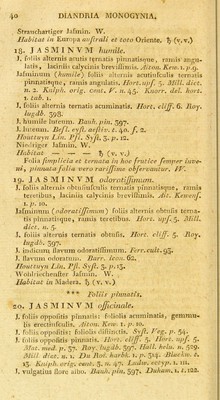 40 DIANDRIA MONOGYNIA.
Strauchartiger Iasmin. W.
Habitat in Europa australi et toto Oriente. ♄ (v. v.)
18. JASMINVM humile.
J. foliis alternis acutis ternatis pinnatisque, ramis angu-
latis, laciniis calycinis brevissimis. Aiton. Kew. 1. p. 9.
Jasminum (humile) foliis alternis acutiusculis ternatis
pinnatisque, ramis angulatis. Hort. upf. 5. Mill. dict.
n. 2. Kulph. orig. cent. V. n. 45. Knorr. del. hort.
1. tab. 1.
J. foliis alternis ternatis acuminatis. Hort. cliff. 6. Roy.
lugdb. 398.
J. humile luteum. Bauh. pin. 397.
J. luteum. Besl. eyst. aestiv. t. 40. f. 2.
Houttuyn Lin. Pfl. Syst. 3. p. 12.
Niedriger Iasmin. W.
Habitat — — — ♄ (v. v.)
Folia simplicia et ternata in hoc frutice semper inve-
ni, pinnata folia vero rarissime observantur. W.
19. JASMINVM odoratissimum.
J. foliis alternis obtusiusculis ternatis pinnatisque, ramis
teretibus, laciniis calycinis brevissimis. Ait. Kewens.
1. p. 10.
Jasminum (odoratissimum) foliis alternis obtusis terna-
tis pinnatisque, ramis teretibus. Hort. upf. 5. Mill.
dict. n. 5.
J. foliis alternis ternatis obtusis. Hort. cliff. 5. Roy.
lugdb. 397.
J. indicum flavum odoratissimum. Ferr. cult. 93.
J. flavum odoratum. Barr. icon. 62.
Houttuyn Lin. Pfl. Syst. 3. p. 13.
Wohlriechendster Iasmin. W.
Habitat in Madera. ♄ (v. v.)
*** Foliis pinnatis.
20. JASMINVM officinale.
J. foliis oppositis pinnatis: foliolis acuminatis, gemmu-
lis erectiusculis. Aiton. Kew. 1. p. 10.
J. foliis oppositis; foliolis distinctis. Syst. Veg. p. 54.
J. foliis oppositis pinnatis. Hort. cliff. 5. Hort. upf. 5.
Mat. med. p. 37. Roy. lugdb. 397. Hall. helv. n. 529.
Mill. dict. n. 1. Du Roi. harbk. 1. p. 314. Blackw. t.
13. Kulph. orig. cent. 3. n. 47. Ludw. ectyp. t. 111.
J. vulgatius flore albo. Bauh. pin. 397. Duham. 1. t. 122.